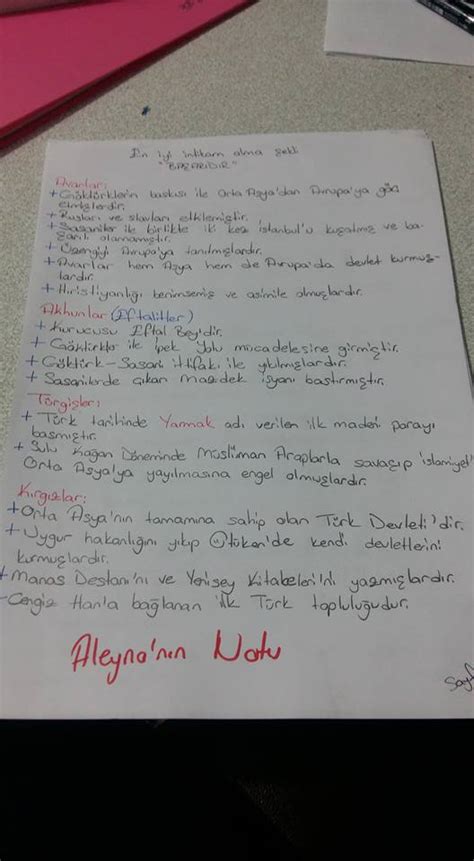 En iyi intikam alma şekli
"BAŞARIDIR"
Avarlar;
+ Göktürklerin baskısı ile Orta Asya'dan Avrupa'ya göç
etmişlerdir.
+ Rusları ve slavları etkilemiştir.
+ Sasaniler ile birlikte ilk kez İstanbul'u kuşatmış ve ba-
şarılı olamamıştır.
+ Üzengiyi Avrupa'ya tanıtmışlardır.
+ Avarlar hem Asya hem de Avrupa'da devlet kurmuş-
lardır.
+ Hıristiyanlığı benimsemiş ve asimile olmuşlardır.
Akhunlar (Eftalitler)
+ Kurucusu Eftal Bey'dir.
+ Göktürkler ile İpek Yolu mücadelesine girmiştir.
+ Göktürk-Sasani ittifakı ile yıkılmışlardır.
+ Sasanilerde çıkan mazdek isyanı bastırmıştır.
Türgişler;
+ Türk tarihinde Yarmak adı verilen ilk madeni parayı
basmıştır.
+ Sulu Kağan Döneminde Müslüman Araplarla savaşıp İslamiyet'
Orta Asya'ya yayılmasına engel olmuşlardır.
Kırgızlar;
+ Orta Asya'nın tamamına sahip olan Türk Devleti'dir.
+ Uygur hakanlığını yıkıp Ötüken'de kendi devletlerini
kurmuşlardır.
+ Manas Destanı'nı ve Yenisey Kitabeleri'ni yazmışlardır.
- Cengiz Han'a bağlanan ilk Türk topluluğudur.
Aleyna'nın Notu